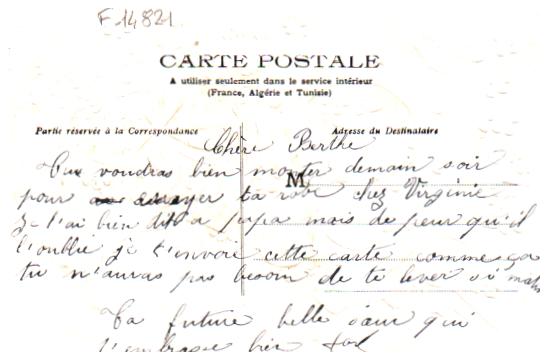 F 14821
CARTE POSTALE
A utiliser seulement dans le service intérieur
(France, Algérie et Tunisie)
Partie réservée à la Correspondance
Adresse du Destinataire
M
Chère Berthe
Tu voudras bien monter demain soir
pour essayer ta robe chez Virginie
je l'ai bien dit a papa mais de peur qu'il
l'oublie je t'envoie cette carte comme ça
tu n'auras pas besoin de te lever si mat
Ta future belle sœur qui
t'embrasse bien fort